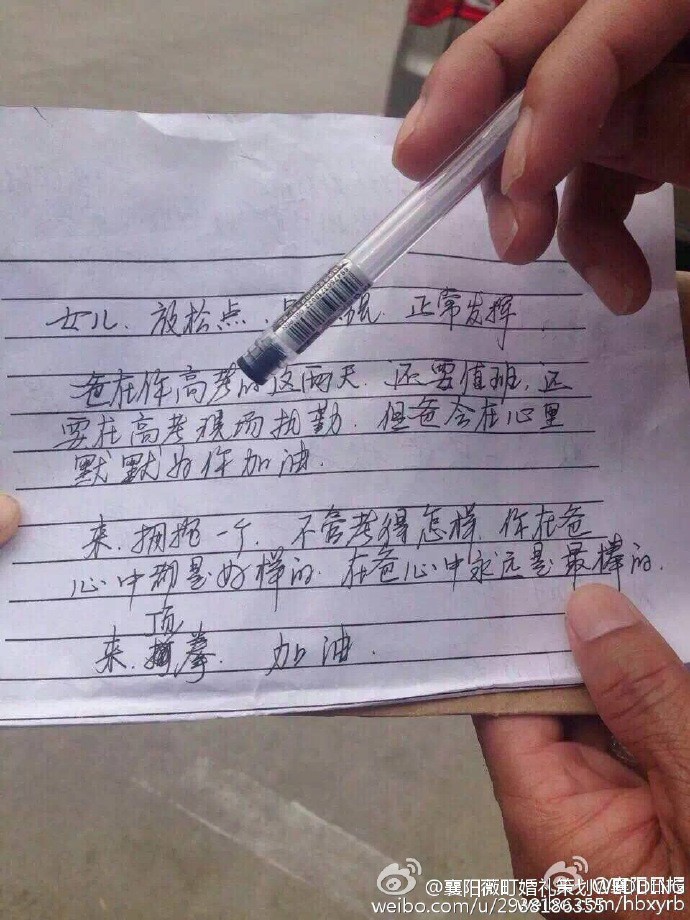 女儿.放松点.正常发挥
爸在你高考的这两天.还要值班.还
要在高考现场执勤.但爸会在心里
默默为你加油.
来.拥抱一个.不管考得怎样.你在爸
心中都是好样的.在爸心中永远是最棒的.
顶
来.拳.加油.
@襄阳薇町婚礼策划WEDDING
weibo.com/u/2938186355
weibo.com/hbxyrb